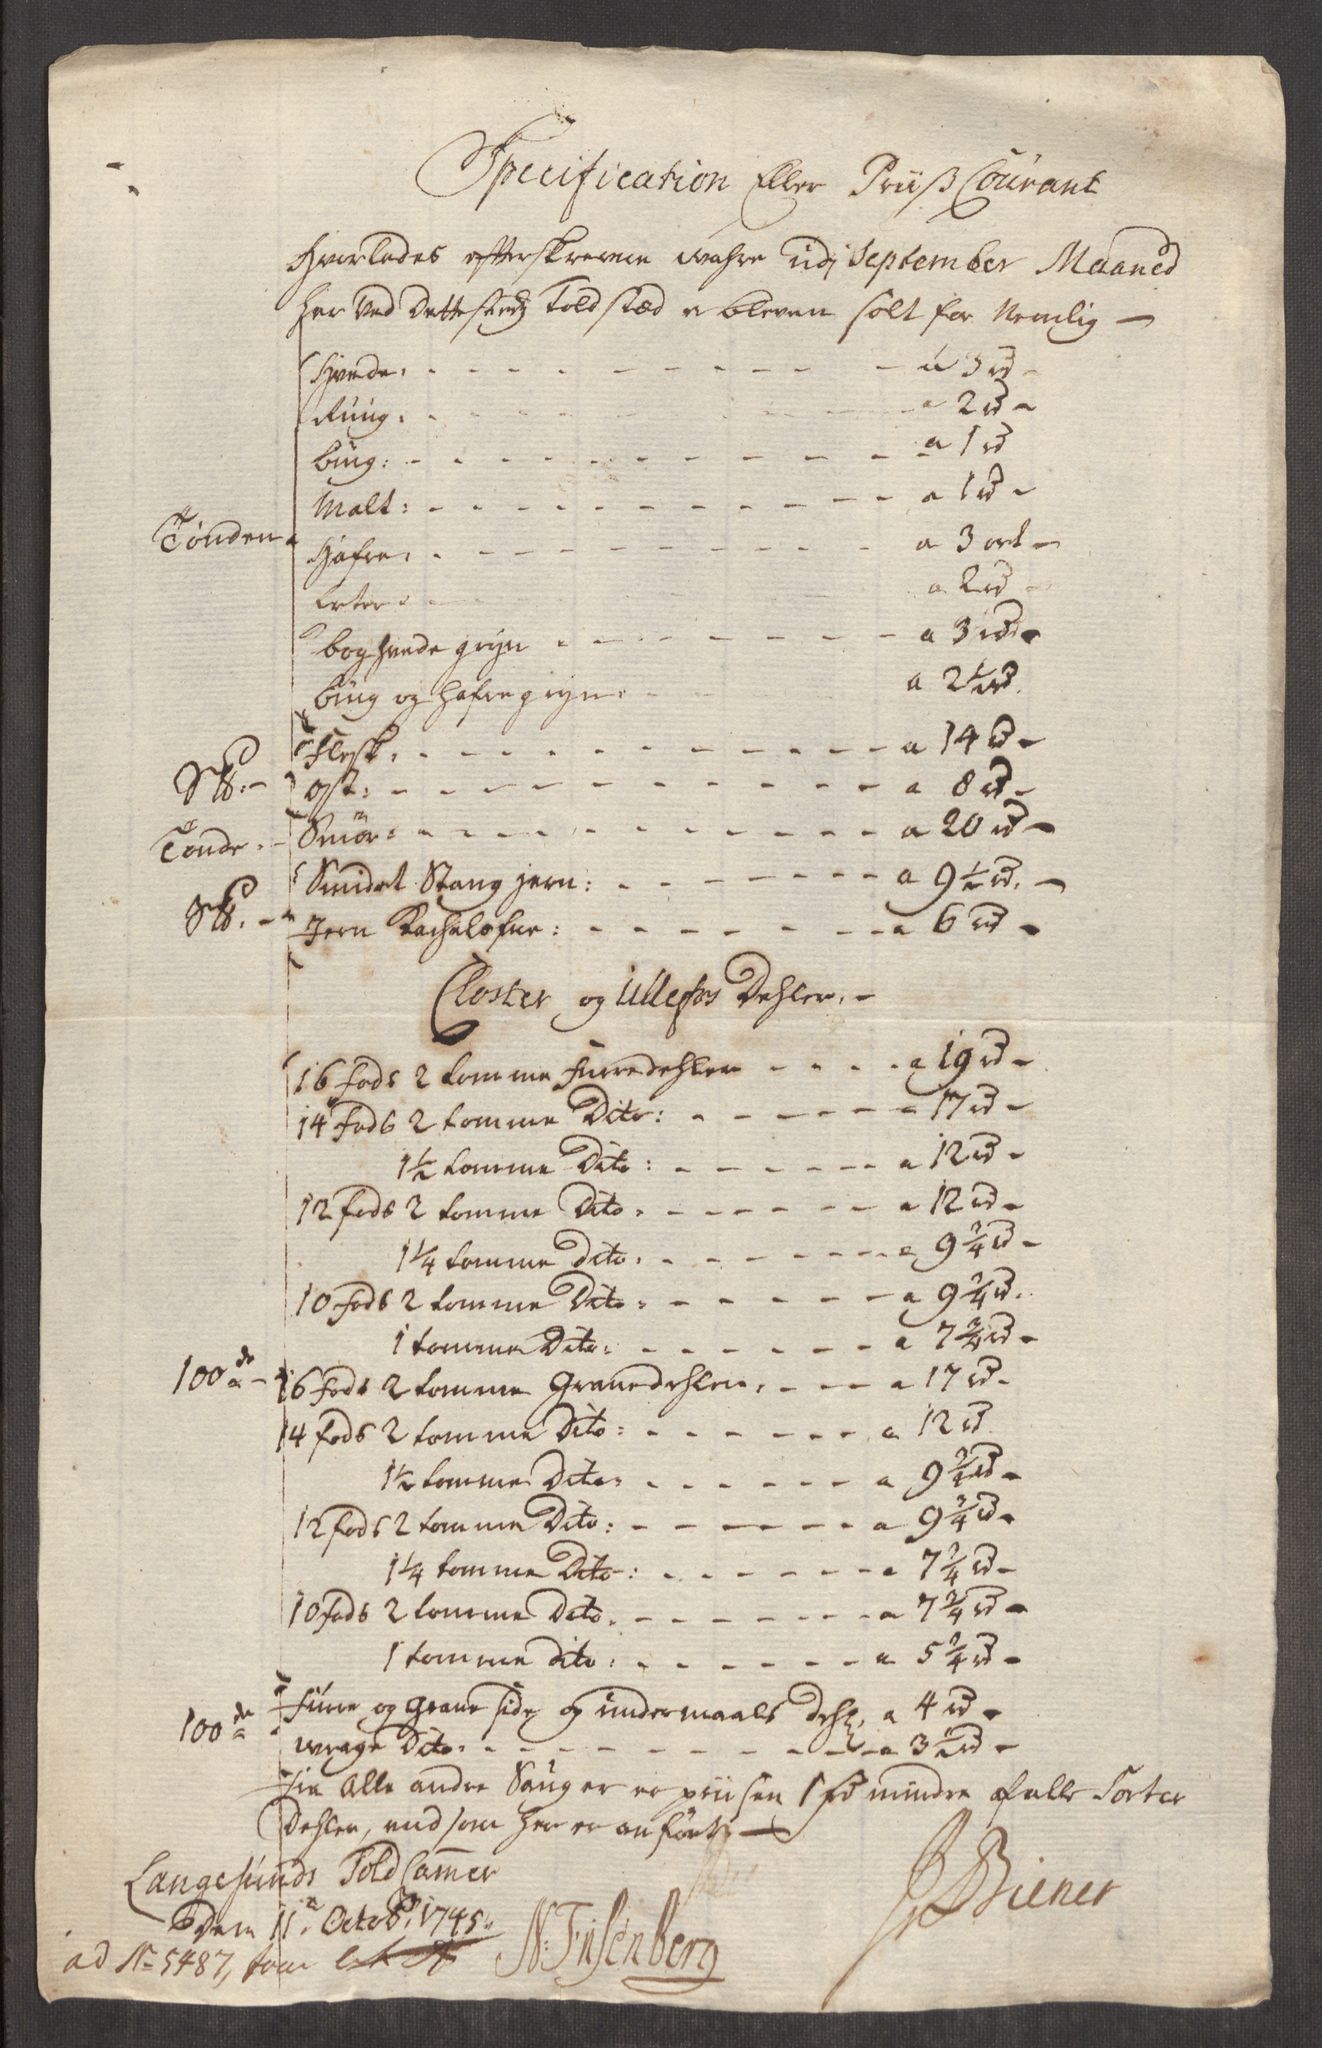 Specification Eller Priiß Courant
hvorledes efterskrevne wahre udj September Maaned
her ved Dette Told stæd er bleven solt for Nemlig –
Hvede: a 3 rd –
Rüug: a 2 rd –
büug: a 1 rd
Malt: a 1 rd –
Tönden
Hafre: a 3 ort –
Erter: a 2 rd –
boghvede gryn a 3 rd –
büug og hafre gryn: a 2½ rd.
Flesk: a 14 rd –
S℔: –
ost: a 8 rd –
Tönde: – Smör: a 20 rd –
Smidet Stang jern: a 9½ rd. –
S℔. – Jern Kachelofne: a 6 rd –
Closter og Ullefos Dehler: –
16 fods 2 tomme furredehler a 19 rd –
14 fods 2 tomme Dito: a 17 rd –
1½ tomme Dito: a 12 rd –
12 fods 2 tomme Dito: a 12 rd –
1¼ tomme Dito: a 9¾ rd –
10 fods 2 tomme Dito: a 9¾ rd.
1 tomme Dito: a 7¾ rd –
100de a – 16 fods 2 tomme Granedehler: a 17 rd –
14 fods 2 tomme Dito: a 12 rd
1½ tomme Dito: a 9¾ rd –
12 fods 2 tomme Dito: a 9¾ rd –
1¼ tomme Dito: a 7¾ rd –
10 fods 2 tomme Dito: a 7¾ rd –
1 tomme Dito: a 5¾ rd –
100de a furre og Grane side og undermaals Dehl: a 4 rd –
wrage Dito: a 3½ rd –
fra Alle andre Sauger er priisen 1 rd mindre af alle Sorter
Dehler, end som her er anfört –
Langesunds Told Cammer
Den 11te Octobr: 1745.
N: Füsenberg
Biener
ad No 5487,